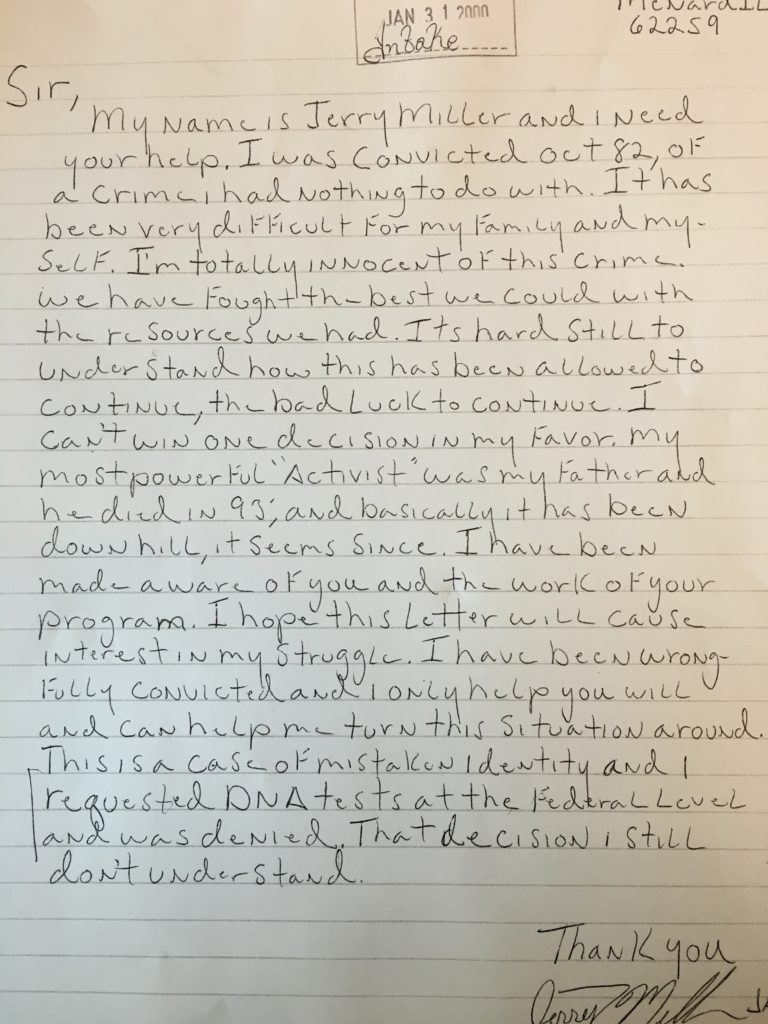 JAN 31 2000
Intake
Menard IL
62259
Sir,
My name is Jerry Miller and I need
your help. I was convicted Oct 82, of
a crime I had nothing to do with. It has
been very difficult for my family and my-
self. I'm totally innocent of this crime.
We have fought the best we could with
the resources we had. Its hard still to
understand how this has been allowed to
continue, the bad luck to continue. I
can't win one decision in my favor. My
most powerful "Activist" was my father and
he died in 93', and basically it has been
down hill, it seems since. I have been
made aware of you and the work of your
program. I hope this letter will cause
interest in my struggle. I have been wrong-
fully convicted and I only help you will
and can help me turn this situation around.
This is a case of mistaken identity and I
requested DNA tests at the Federal Level
and was denied. That decision I still
don't understand.
Thank you
Jerry Miller